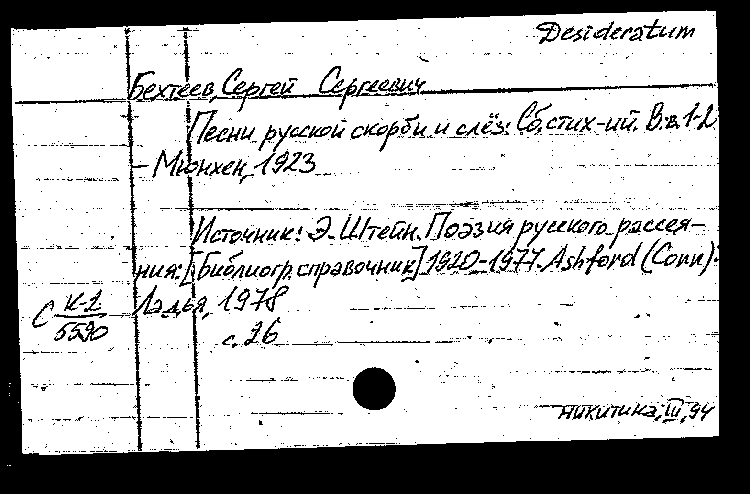 Desideratum
Бехтеев, Сергей Сергеевич
Песни русской скорби и слёз: Сб. стих-ий. В. в. 1-2
- Мюнхен, 1923
Источник: Э. Штейн. Поэзия русского рассея-
ния: [Библиогр. справочник] 1920-1977. Ashford (Conn):
Ладья, 1978
с. 26
С К-2
5590
никитина, III, 94